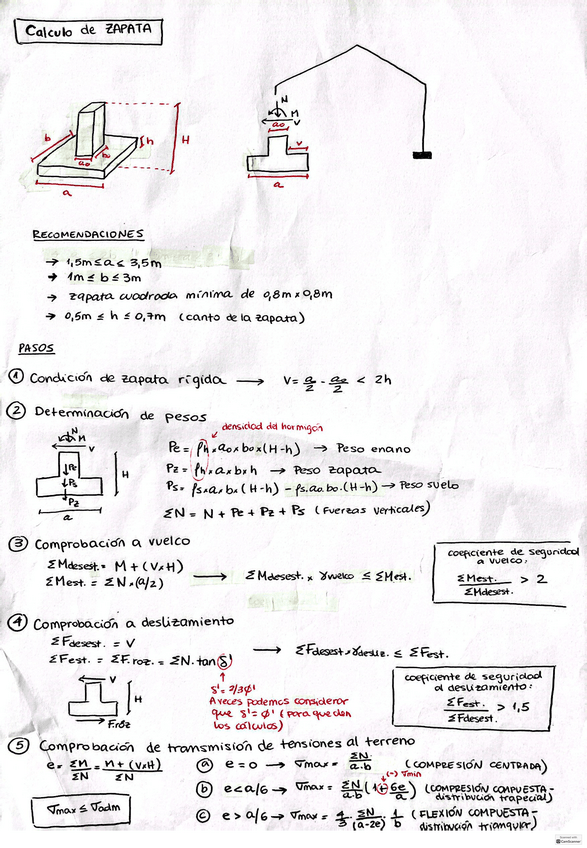 Calculo de ZAPATA
N
M
V
a₀
v
a
b
a₀
b₀
h
H
a
RECOMENDACIONES
→ 1,5m ≤ a ≤ 3,5m
→ 1m ≤ b ≤ 3m
→ zapata cuadrada mínima de 0,8m x 0,8m
→ 0,5m ≤ h ≤ 0,7m (canto de la zapata)
PASOS
① Condición de zapata rígida → V = a/2 - a₀/2 < 2h
② Determinación de pesos
densidad del hormigón
N
M
V
Pe
Ps
Pz
H
a
Pe = ρh x a₀ x b₀ x (H-h) → Peso enano
Pz = ρh x a x b x h → Peso zapata
Ps = ρs x a x b x (H-h) - ρs.a₀.b₀.(H-h) → Peso suelo
ΣN = N + Pe + Pz + Ps (Fuerzas verticales)
③ Comprobación a vuelco
ΣMdesest. = M + (V x H)
ΣMest. = ΣN x (a/2) → ΣMdesest. x γvuelco ≤ ΣMest.
coeficiente de seguridad
a vuelco:
ΣMest. / ΣMdesest. > 2
④ Comprobación a deslizamiento
ΣFdesest. = V
ΣFest. = ΣF.roz. = ΣN. tan δ' → ΣFdesest x γdesliz. ≤ ΣFest.
V
H
F.roz
δ' = 2/3 φ'
A veces podemos considerar
que δ' = φ' (para que den
los cálculos)
coeficiente de seguridad
al deslizamiento:
ΣFest. / ΣFdesest. > 1,5
⑤ Comprobación de transmisión de tensiones al terreno
e = ΣM/ΣN = M + (V x H)/ΣN
σmax ≤ σadm
ⓐ e = 0 → σmax = ΣN/a.b (COMPRESIÓN CENTRADA)
(-) σmin
ⓑ e < a/6 → σmax = ΣN/a.b (1 + 6e/a) (COMPRESIÓN COMPUESTA - distribución trapecial)
ⓒ e > a/6 → σmax = 4/3 . ΣN/(a-2e) . 1/b (FLEXIÓN COMPUESTA - distribución triangular)
CamScanner